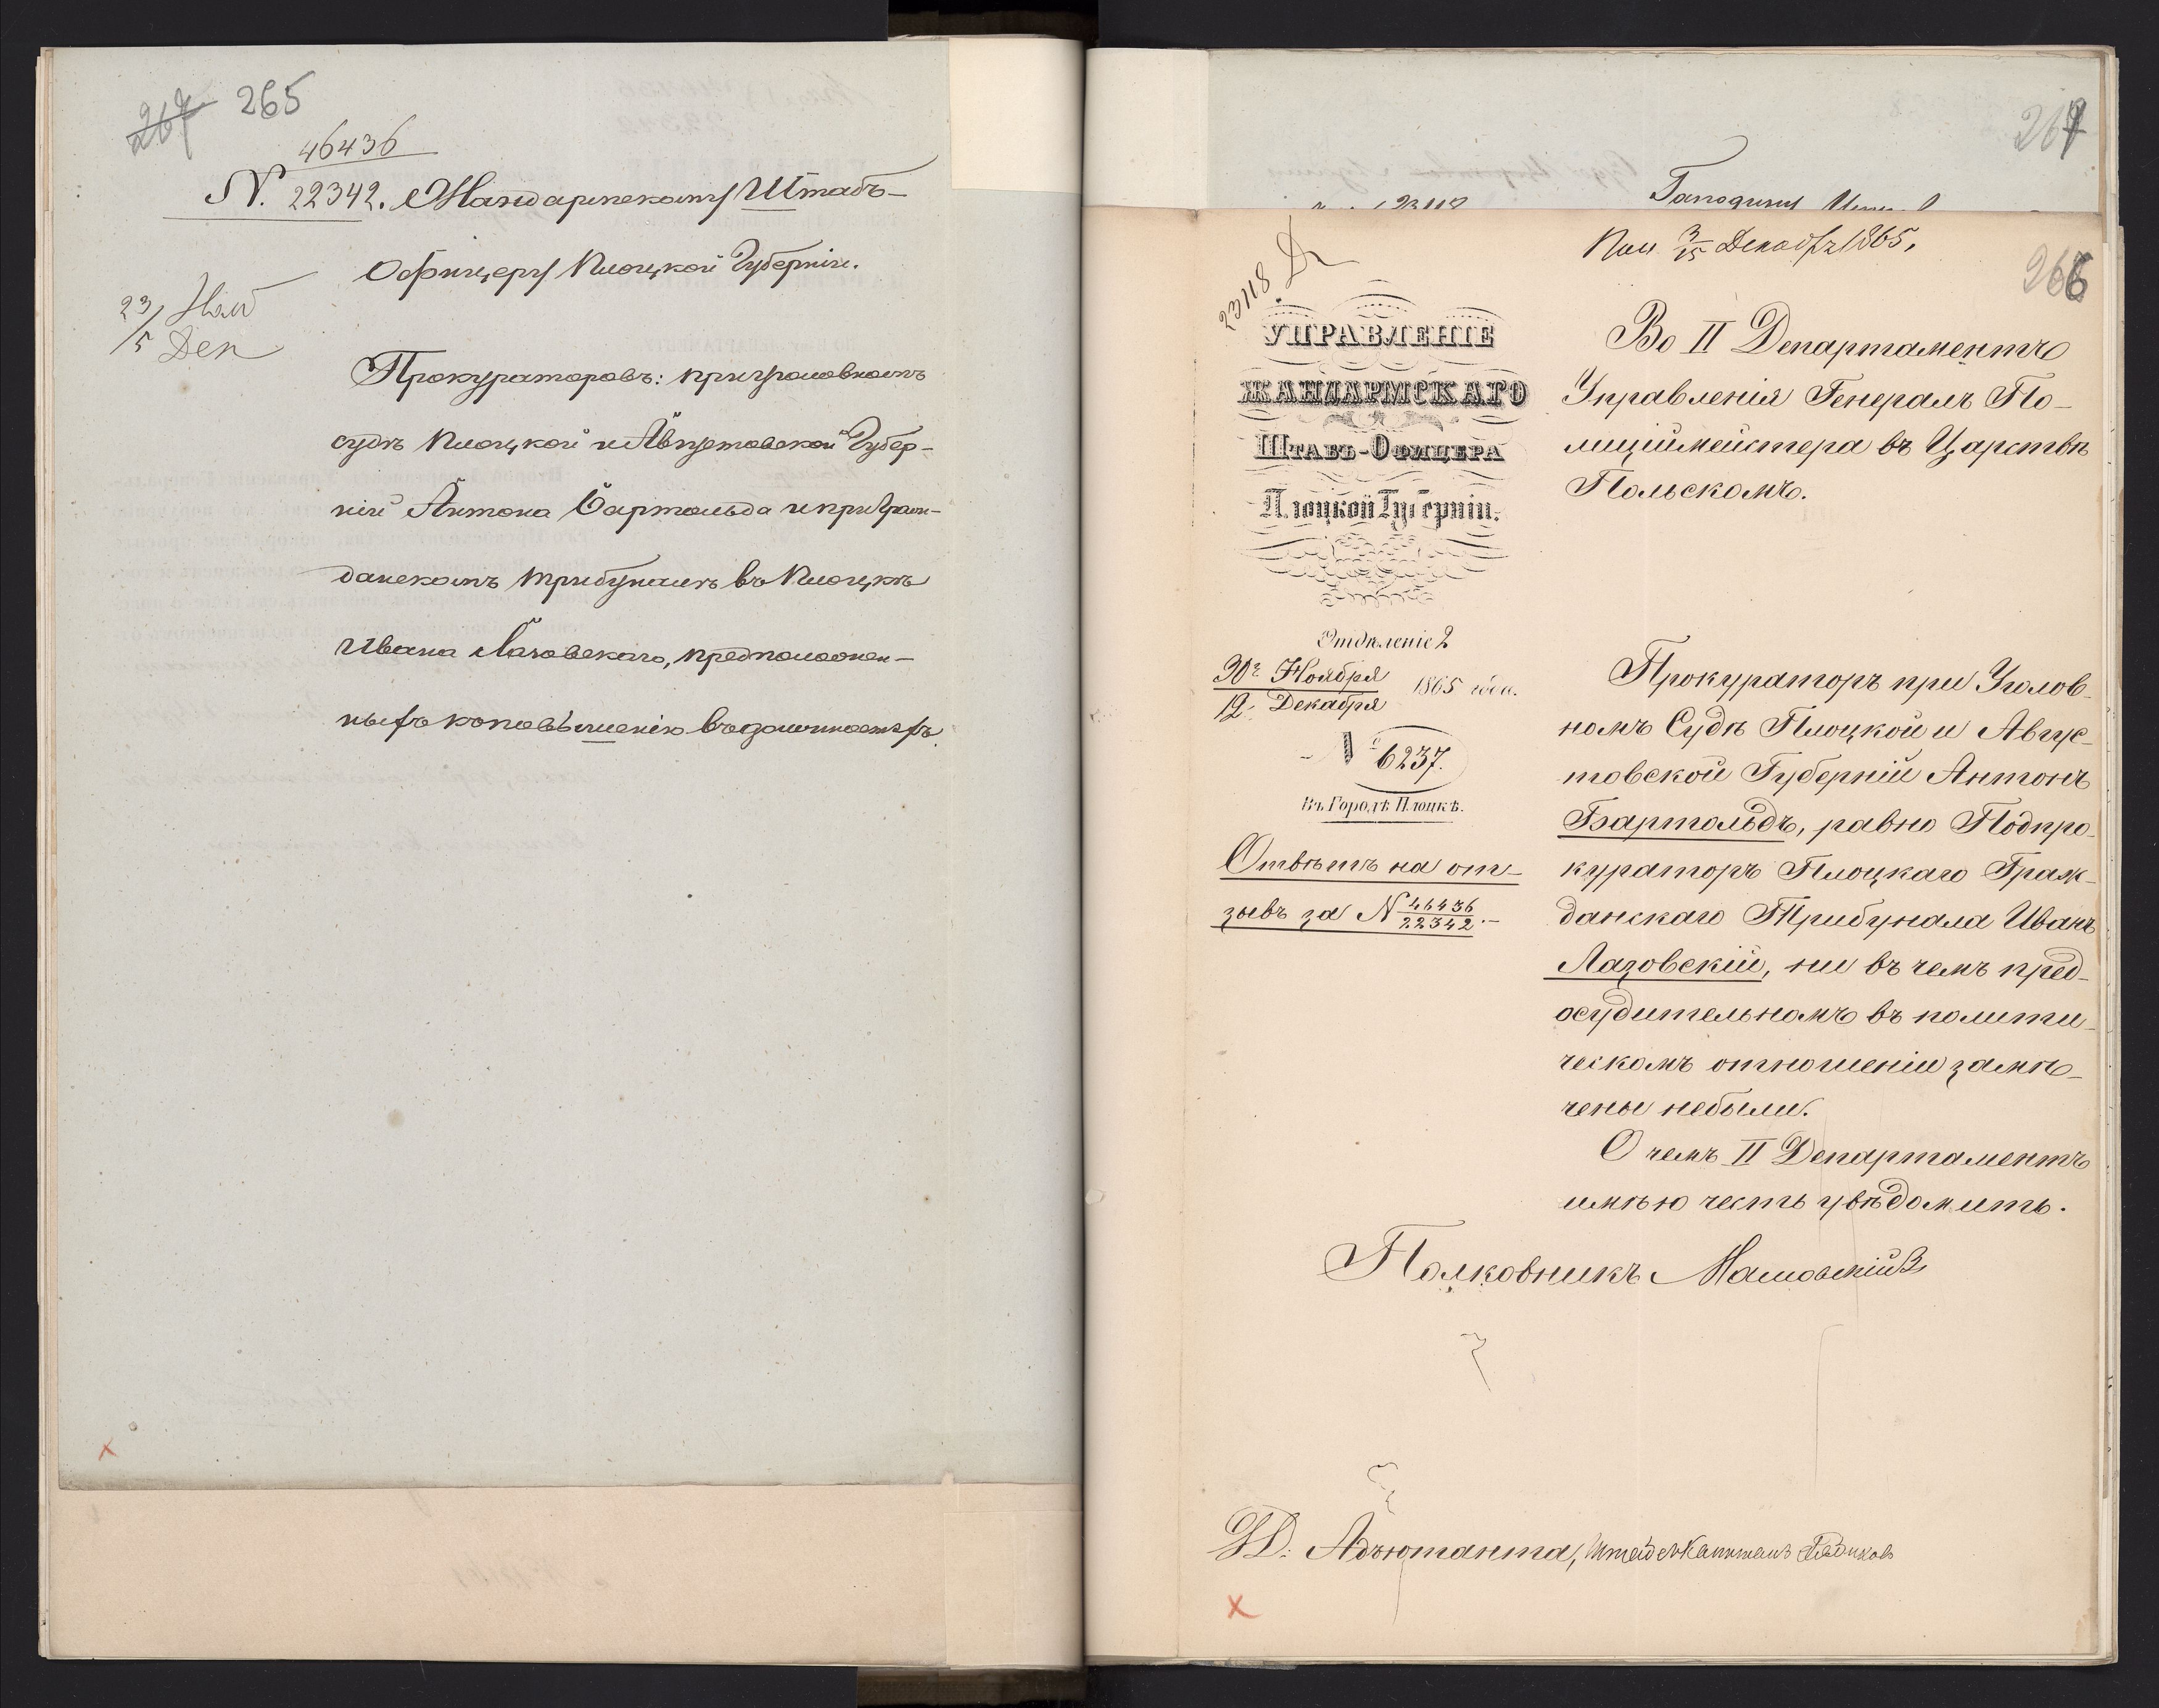 267 265
46436
N. 22342. Жандармскому Штабъ-
Офицеру Плоцкой Губерніи.
23/5 Ноя Дек
Прокураторовъ: при уголовномъ
судѣ Плоцкой и Августовской Губер-
ній Антона Бартольда и при Граж-
данскомъ трибуналѣ въ Плоцкѣ
Ивана Лазовскаго, предположен-
ныхъ к повышенію въ должностяхъ.
267
Господину
23118
Пол 3/15 Декабр 1865.
266
23118
УПРАВЛЕНІЕ
ЖАНДАРМСКАГО
ШТАБЪ-ОФИЦЕРА
Плоцкой Губерніи.
Отдѣленіе 2
30го Ноября
12 Декабря 1865 года.
№ 6237.
Въ Городѣ Плоцкѣ.
Отвѣтъ на от-
зывъ за N 46436
22342.-
Во II Департаментъ
Управленія Генералъ По-
лиціймейстера въ Царствѣ
Польскомъ.
Прокураторъ при Уголов-
номъ Судѣ Плоцкой и Авгус-
товской Губерній Антонъ
Бартольдъ, равно Подпро-
кураторъ Плоцкаго Граж-
данскаго Трибунала Иванъ
Лазовскій, ни въ чемъ пред-
осудительномъ въ полити-
ческомъ отношеніи замѣ-
чены небыли.
О чемъ II Департаментъ
имѣю честь увѣдомить.
Полковникъ
И.Д. Адъютанта, Штабсъ Капитанъ